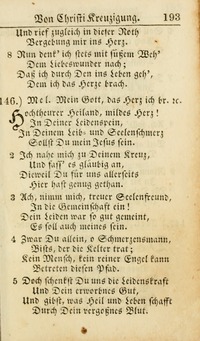 Von Christi Kreuzigung. 193
Und rief zugleich in dieser Noth
Vergebung mir ins Herz.
8 Nun denk' ich stets mit süßem Weh'
Dem Liebeswunder nach;
Daß ich durch Den ins Leben geh',
Dem ich das Herze brach.
146.) Mel. Mein Gott, das Herz ich br. ec.
Hochtheurer Heiland, mildes Herz!
In Deiner Leidenspein,
In Deinem Leib- und Seelenschmerz
Sollst Du mein Jesus sein.
2 Ich nahe mich zu Deinem Kreuz,
Und fass' es gläubig an,
Dieweil Du für uns allerseits
Hier hast genug gethan.
3 Ach, nimm mich, treuer Seelenfreund,
In die Gemeinschaft ein!
Dein Leiden war so gut gemeint,
Es soll auch meines sein.
4 Zwar Du allein, o Schmerzensmann,
Bists, der die Kelter trat;
Kein Mensch, kein reiner Engel kann
Betreten diesen Pfad.
5 Doch schenkst Du uns die Leidenskraft
Und Dein erworbnes Gut,
Und gibst, was Heil und Leben schafft
Durch Dein vergoßnes Blut.